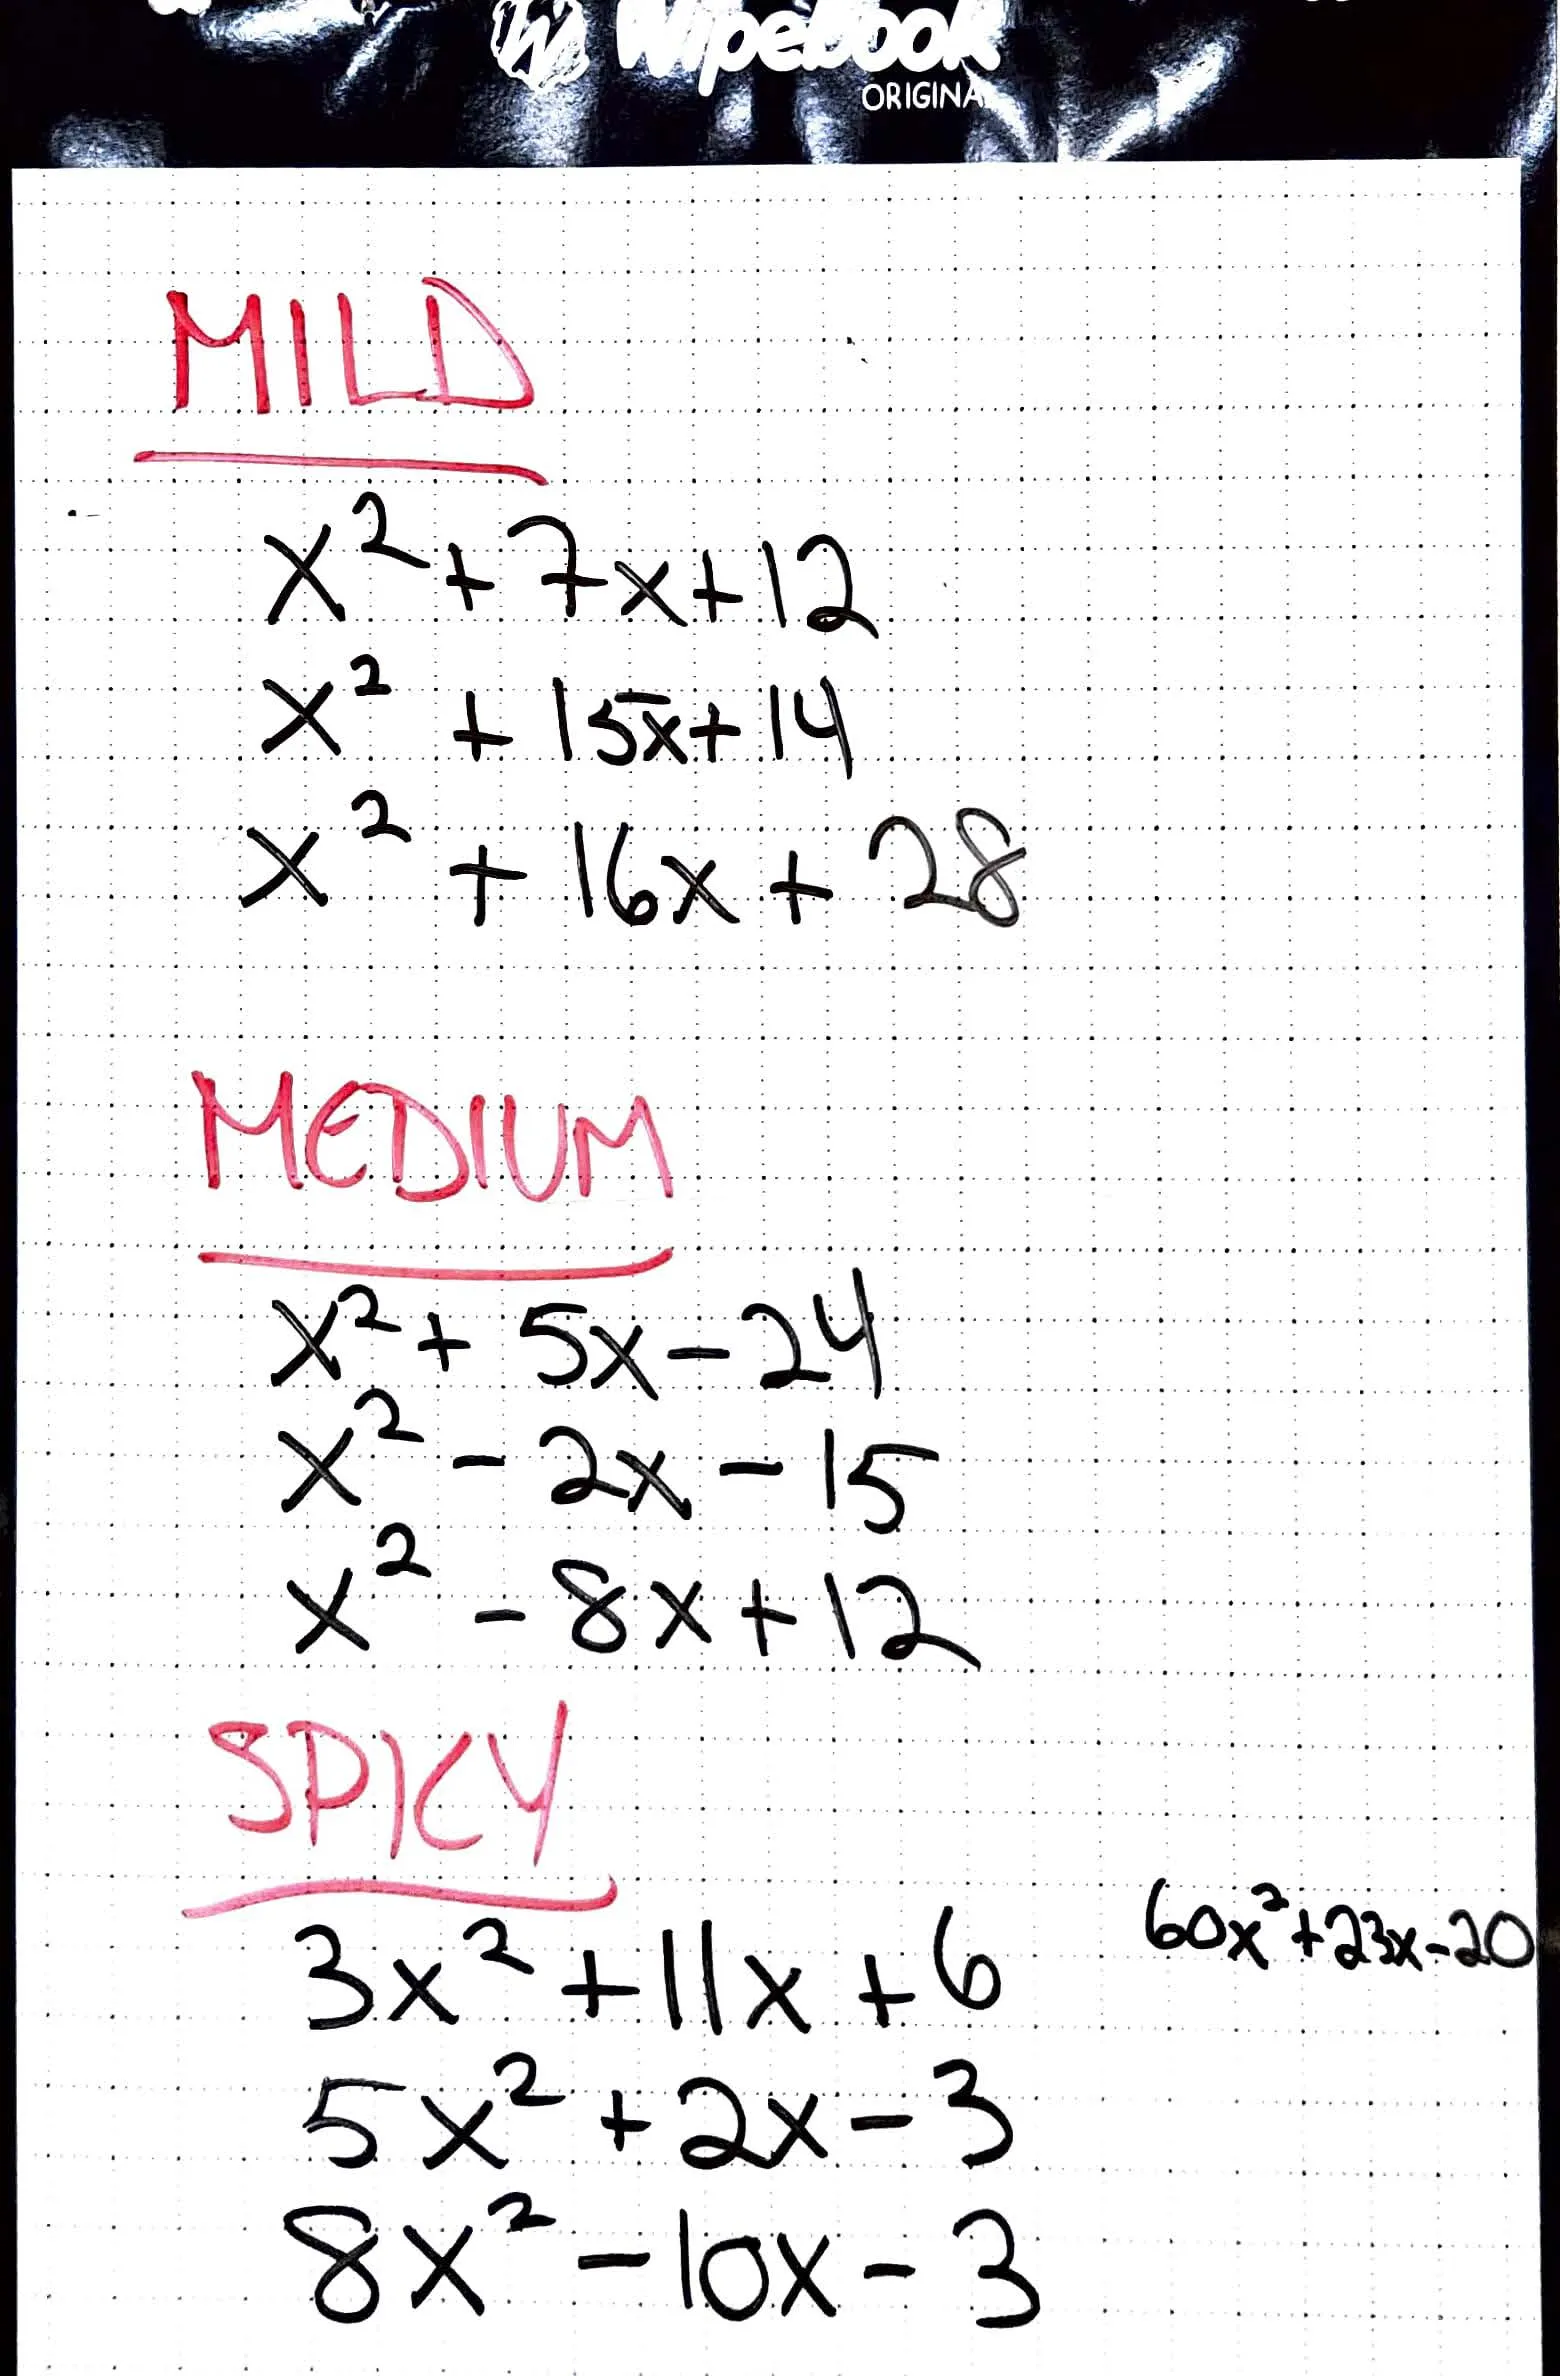 Wipebook
ORIGINA
MILD
x² + 7x + 12
x² + 15x + 14
x² + 16x + 28
MEDIUM
x² + 5x - 24
x² - 2x - 15
x² - 8x + 12
SPICY
3x² + 11x + 6
60x² + 23x - 20
5x² + 2x - 3
8x² - 10x - 3